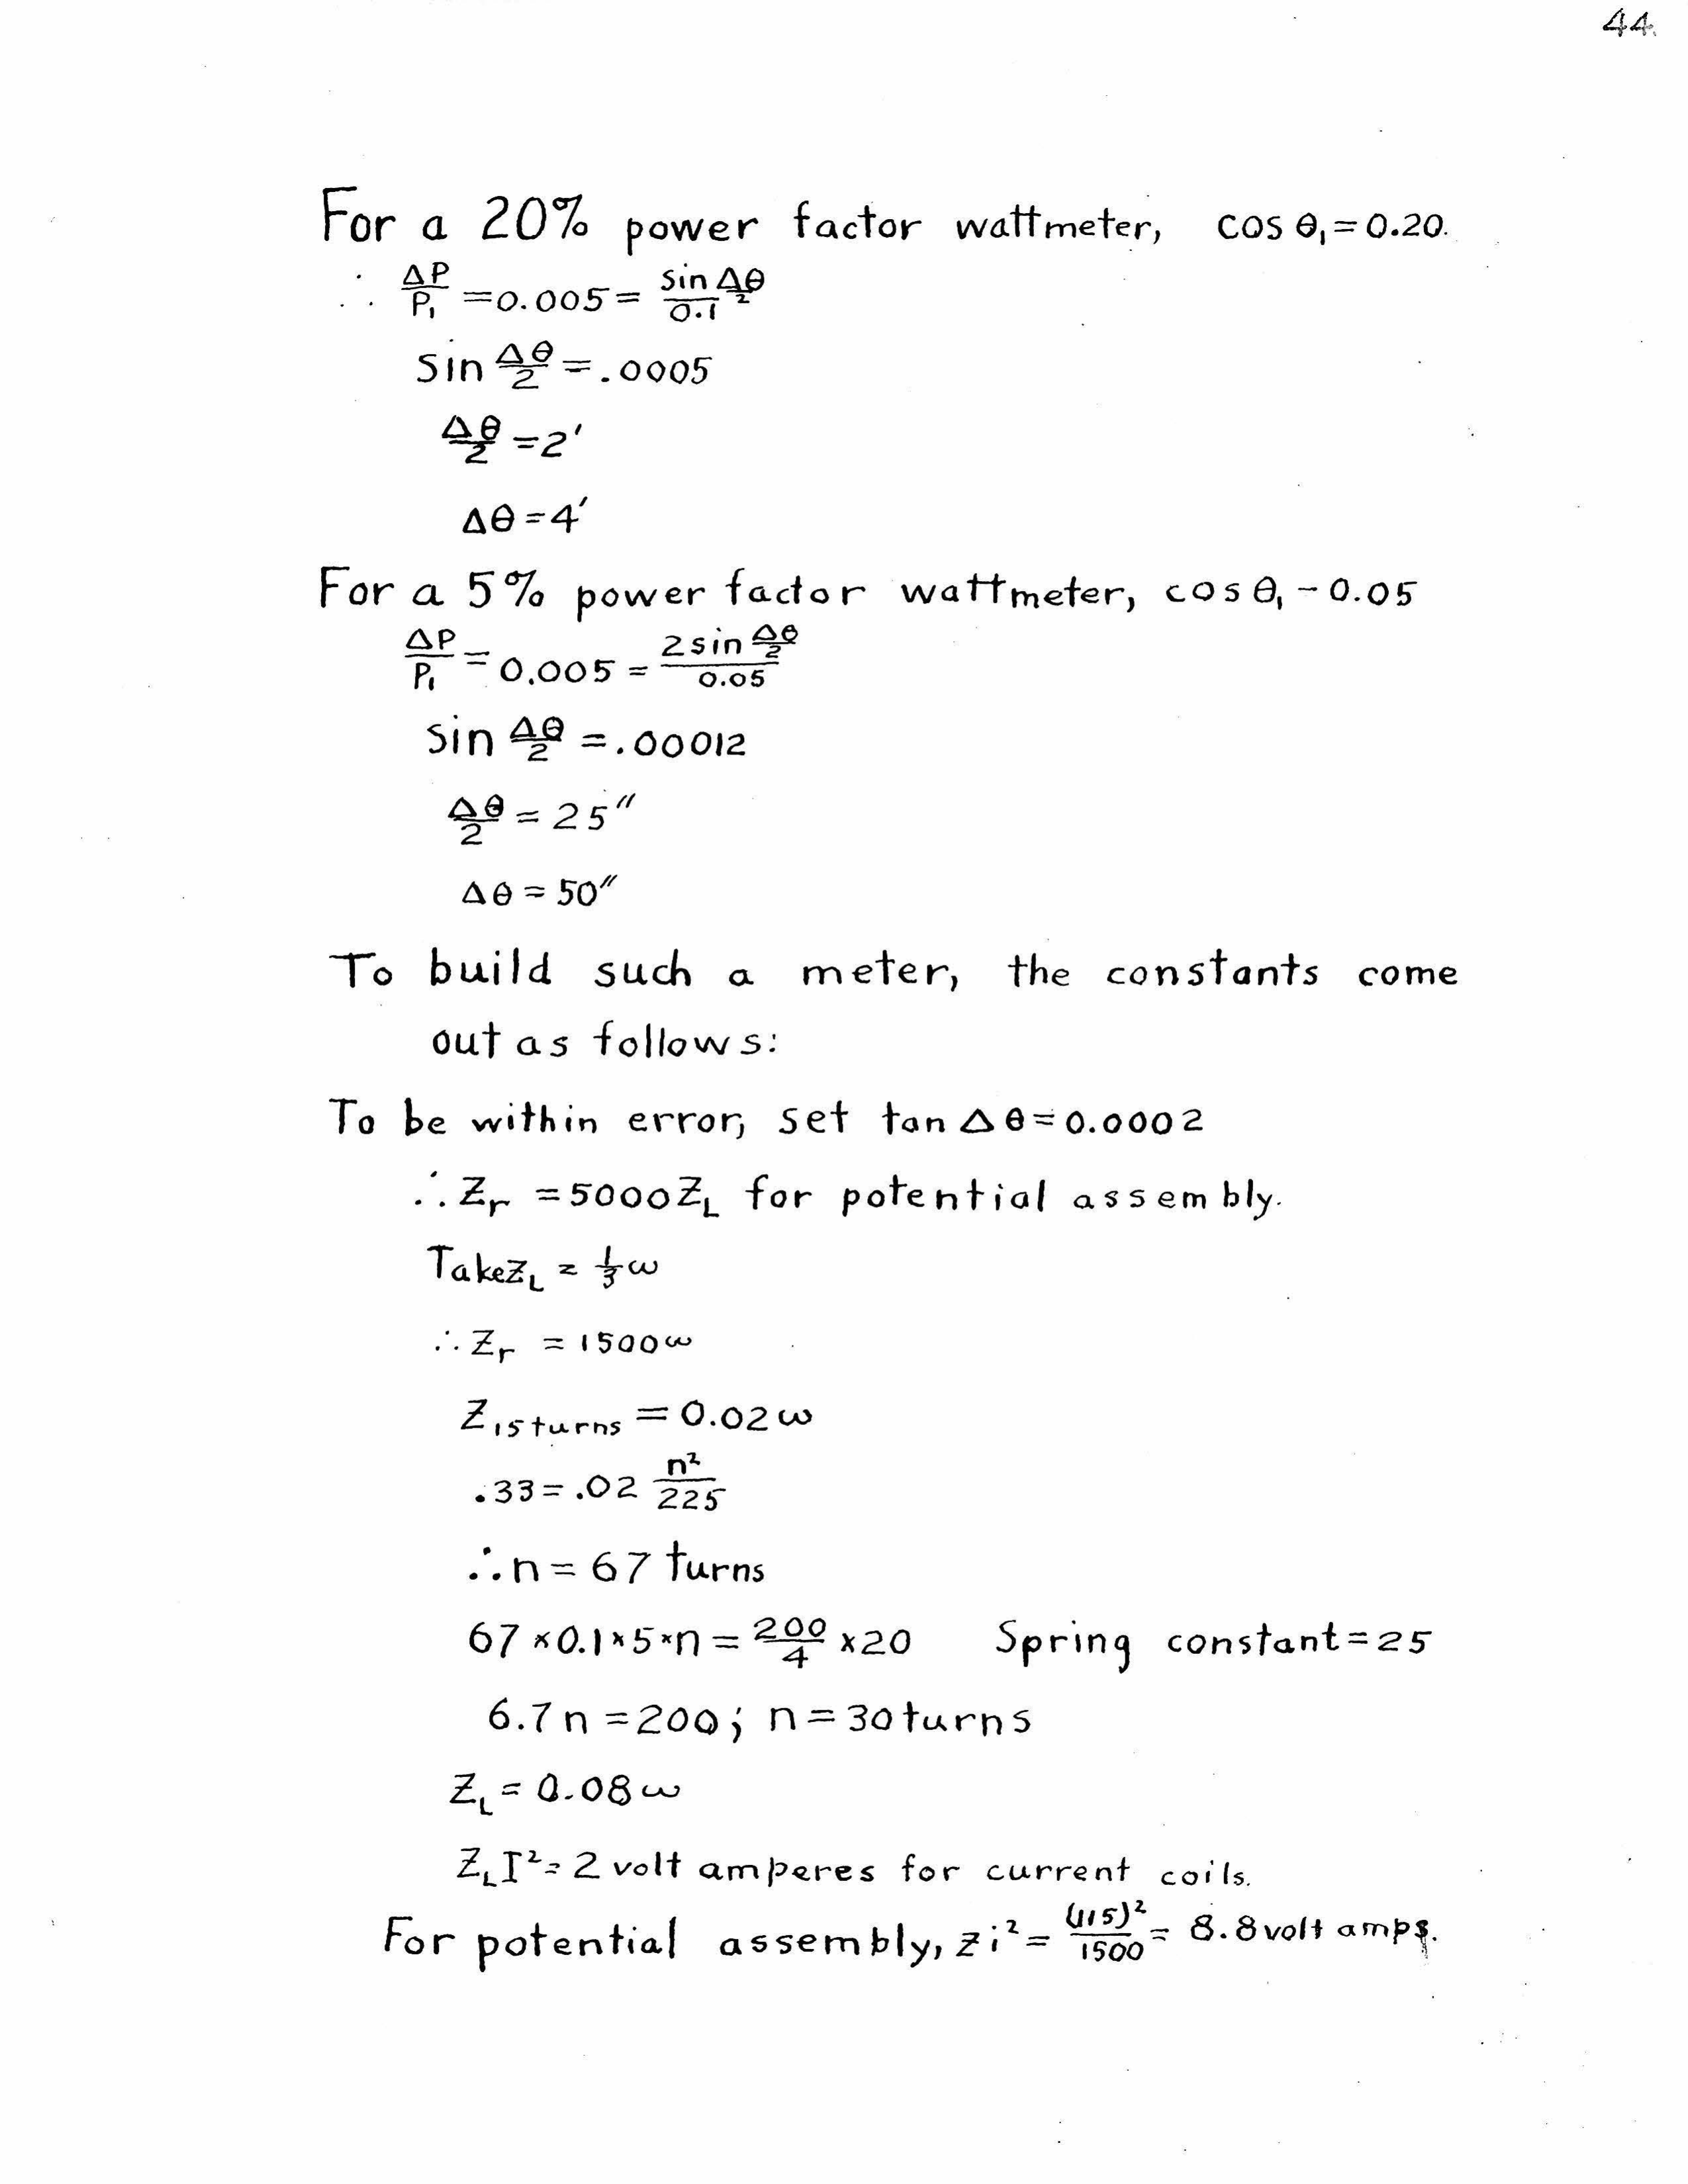 44.
For a 20% power factor wattmeter, cos θ₁ = 0.20.
∴ ΔP/P₁ = 0.005 = sin Δθ/2 / 0.1
sin Δθ/2 = .0005
Δθ/2 = 2′
Δθ = 4′
For a 5% power factor wattmeter, cos θ₁ - 0.05
ΔP/P₁ = 0.005 = 2 sin Δθ/2 / 0.05
sin Δθ/2 = .00012
Δθ/2 = 25″
Δθ = 50″
To build such a meter, the constants come
out as follows:
To be within error, set tan Δθ = 0.0002
∴ Zr = 5000 ZL for potential assembly.
Take ZL = 1/3 ω
∴ Zr = 1500 ω
Z15 turns = 0.02 ω
.33 = .02 n²/225
∴ n = 67 turns
67 × 0.1 × 5 × n = 200/4 × 20 Spring constant = 25
6.7 n = 200; n = 30 turns
ZL = 0.08 ω
ZL I² = 2 volt amperes for current coils.
For potential assembly, z i² = (115)²/1500 = 8.8 volt amps.